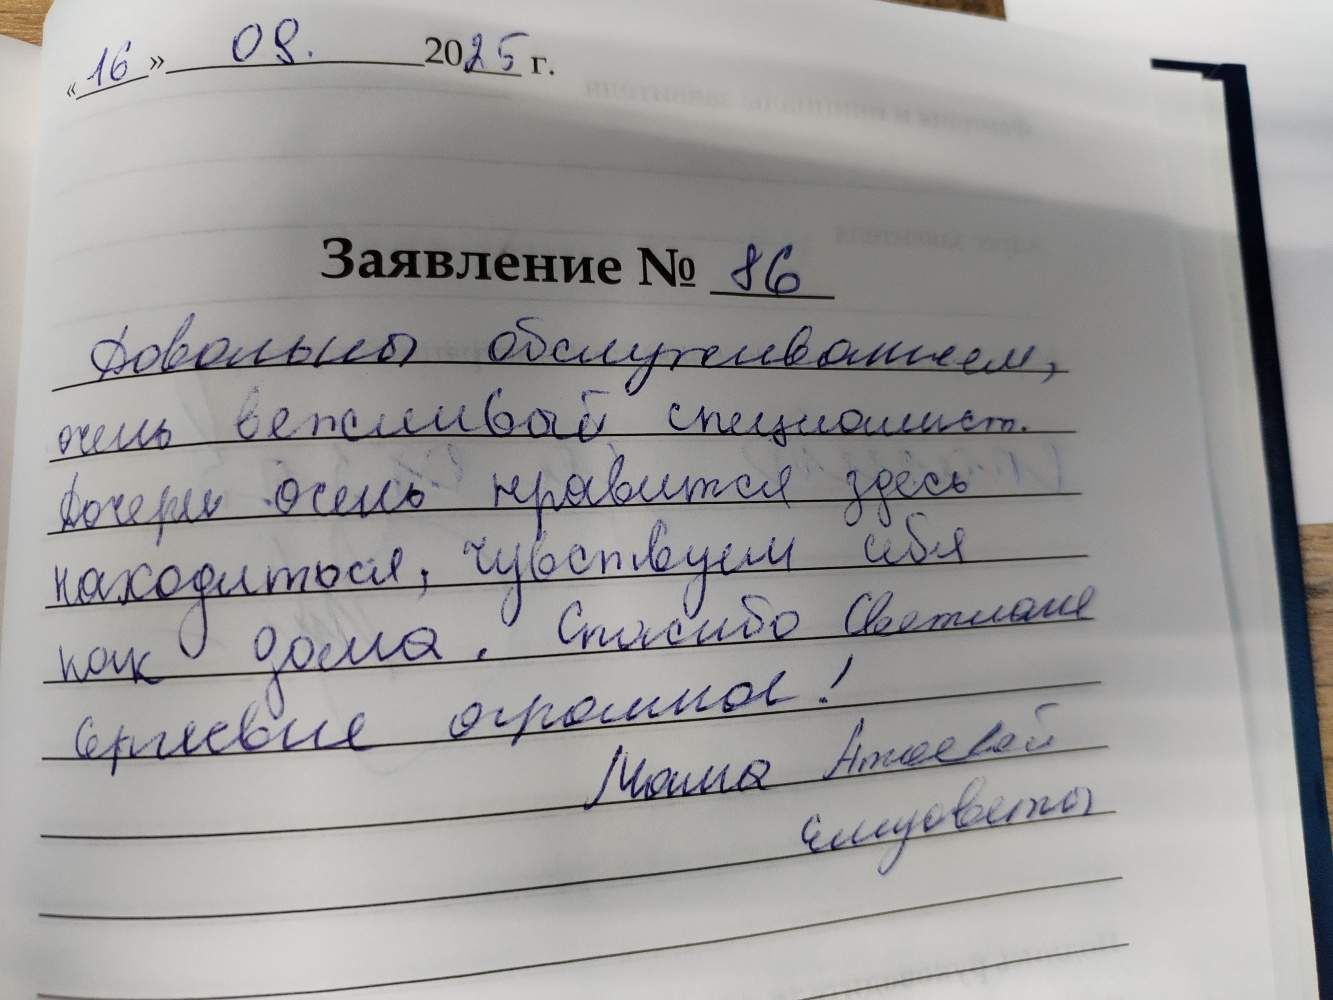 «16» 09. 2025 г.
Заявление № 86
Довольны обслуживанием,
очень вежливый специалист.
Дочери очень нравится здесь
находиться, чувствуем себя
как дома. Спасибо Светлане
Сергеевне огромное!
Мама
Елизаветы